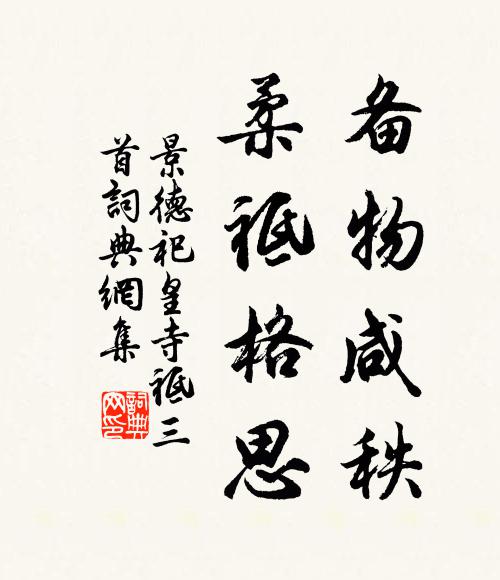 备物咸秩
柔祗格思
景德祀皇寺祗三
首詞典網集
詞典网印